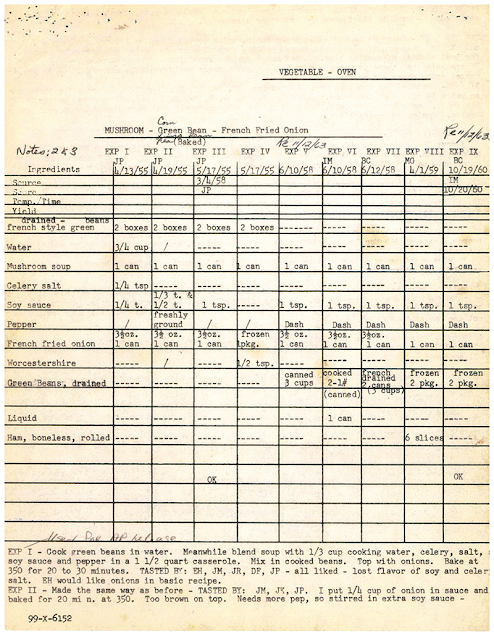 VEGETABLE - OVEN
Corn
MUSHROOM - Green Bean - French Fried Onion
(Baked)
Re 11/12/63
Re 11/12/63
Notes; 2 & 3
EXP I EXP II EXP III EXP IV EXP V EXP VI EXP VII EXP VIII EXP IX
JP JP JP IM RC MG RC
Ingredients 4/13/55 4/19/55 5/17/55 5/17/55 6/10/58 6/10/58 6/12/58 4/1/59 10/19/60
Source 3/4/58 IM
JP 10/20/60
Temp./Time
Yield
drained - beans
french style green 2 boxes 2 boxes 2 boxes 2 boxes ------ ----- ----- ----- -----
Water 3/4 cup / ----- ----- ----- ----- ----- ----- -----
Mushroom soup 1 can 1 can 1 can 1 can 1 can 1 can 1 can 1 can 1 can
Celery salt 1/4 tsp ----- ----- ----- ----- ----- ----- ----- -----
1/3 t. &
Soy sauce 1/4 t. 1/2 t. 1 tsp. / 1 tsp. 1 tsp. 1 tsp. 1 tsp. 1 tsp.
freshly
Pepper / ground / / Dash Dash Dash Dash Dash
3½oz. 3½ oz. 3½oz. frozen 3½oz. 3½oz. 3½oz.
French fried onion 1 can 1 can 1 can 1pkg. 1 can 1 can 1 can 1 can 1 can
Worcestershire ----- / ----- 1/2 tsp. ----- ----- ----- ----- -----
canned cooked french frozen frozen
Green Beans, drained ----- ----- ----- ----- 3 cups 2-1# drained 2 pkg. 2 pkg.
2 cans
(canned) (3 cups)
Liquid ----- ----- ----- ----- ----- 1 can ----- ----- -----
Ham, boneless, rolled ----- ----- ----- ----- ----- ----- ----- 6 slices -----
OK OK
Used for AP release
EXP I - Cook green beans in water. Meanwhile blend soup with 1/3 cup cooking water, celery, salt,
soy sauce and pepper in a 1 1/2 quart casserole. Mix in cooked beans. Top with onions. Bake at
350 for 20 to 30 minutes. TASTED BY: EH, JM, JR, DF, JP - all liked - lost flavor of soy and celery
salt. EH would like onions in basic recipe.
EXP II - Made the same way as before - TASTED BY: JM, JK, JP. I put 1/4 cup of onion in sauce and
baked for 20 mi n. at 350. Too brown on top. Needs more pep, so stirred in extra soy sauce -
99-X-6152